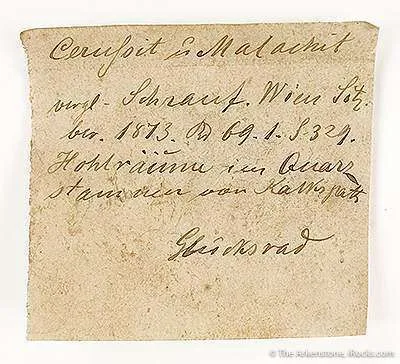 Cerussit u Malachit
vergl. Schrauf. Wien Sitz.
ber. 1873. Bd 69. 1. S. 329.
Hohlräume im Quarz
stammen von Kalkspath
Glücksrad
© The Arkenstone, iRocks.com